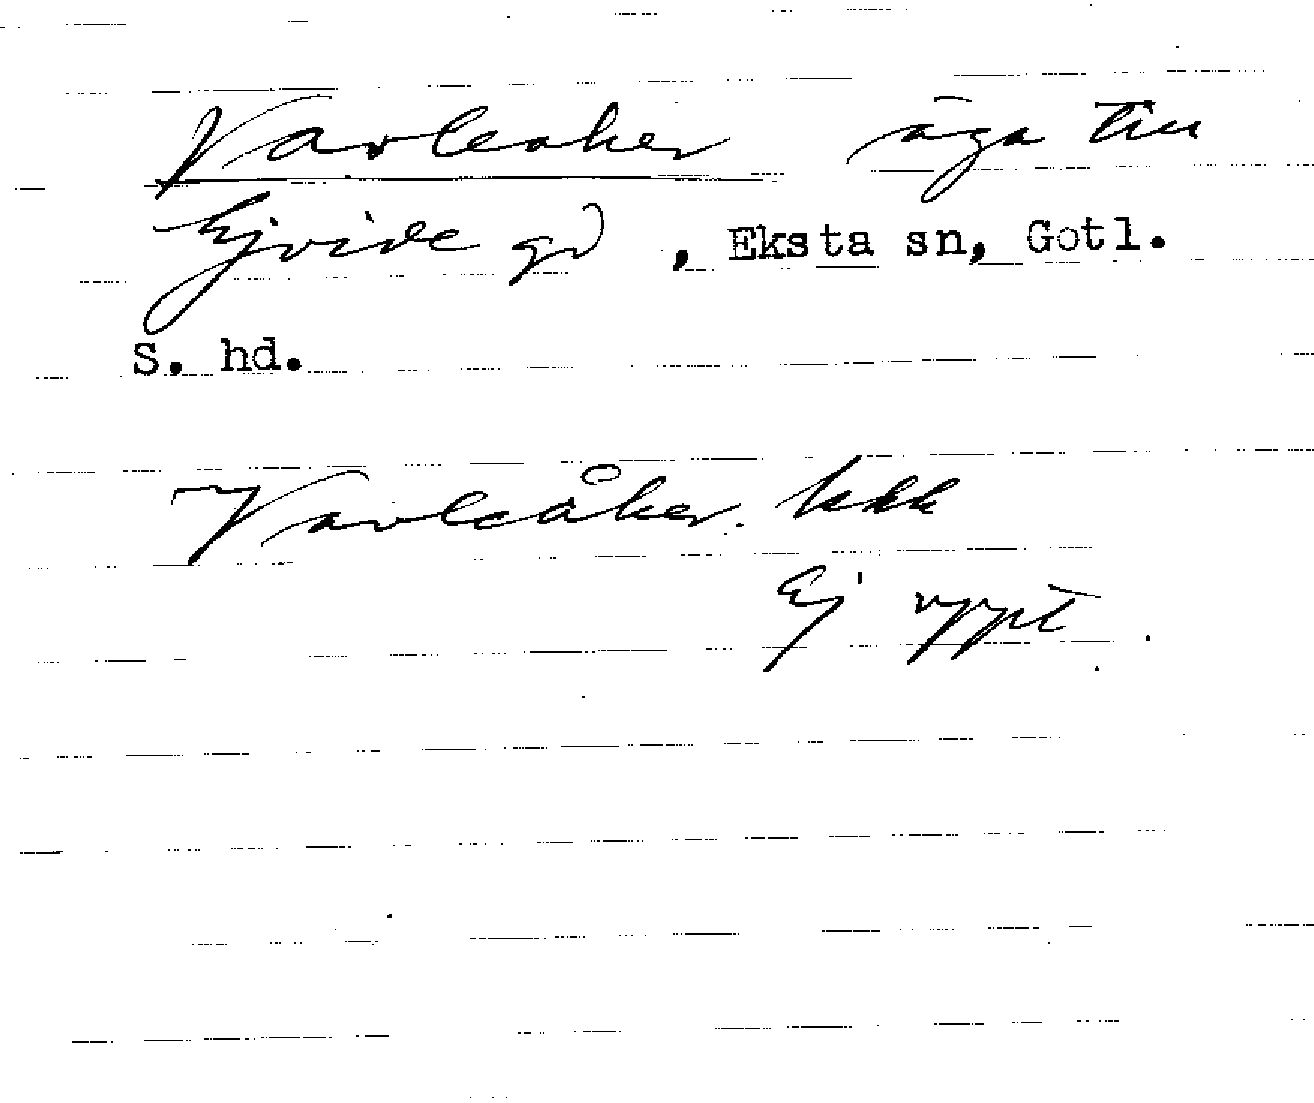 Varleaker äga till
Hjvide gd, Eksta sn, Gotl.
S. hd.
Varleåker. kkk
Ej uppt.